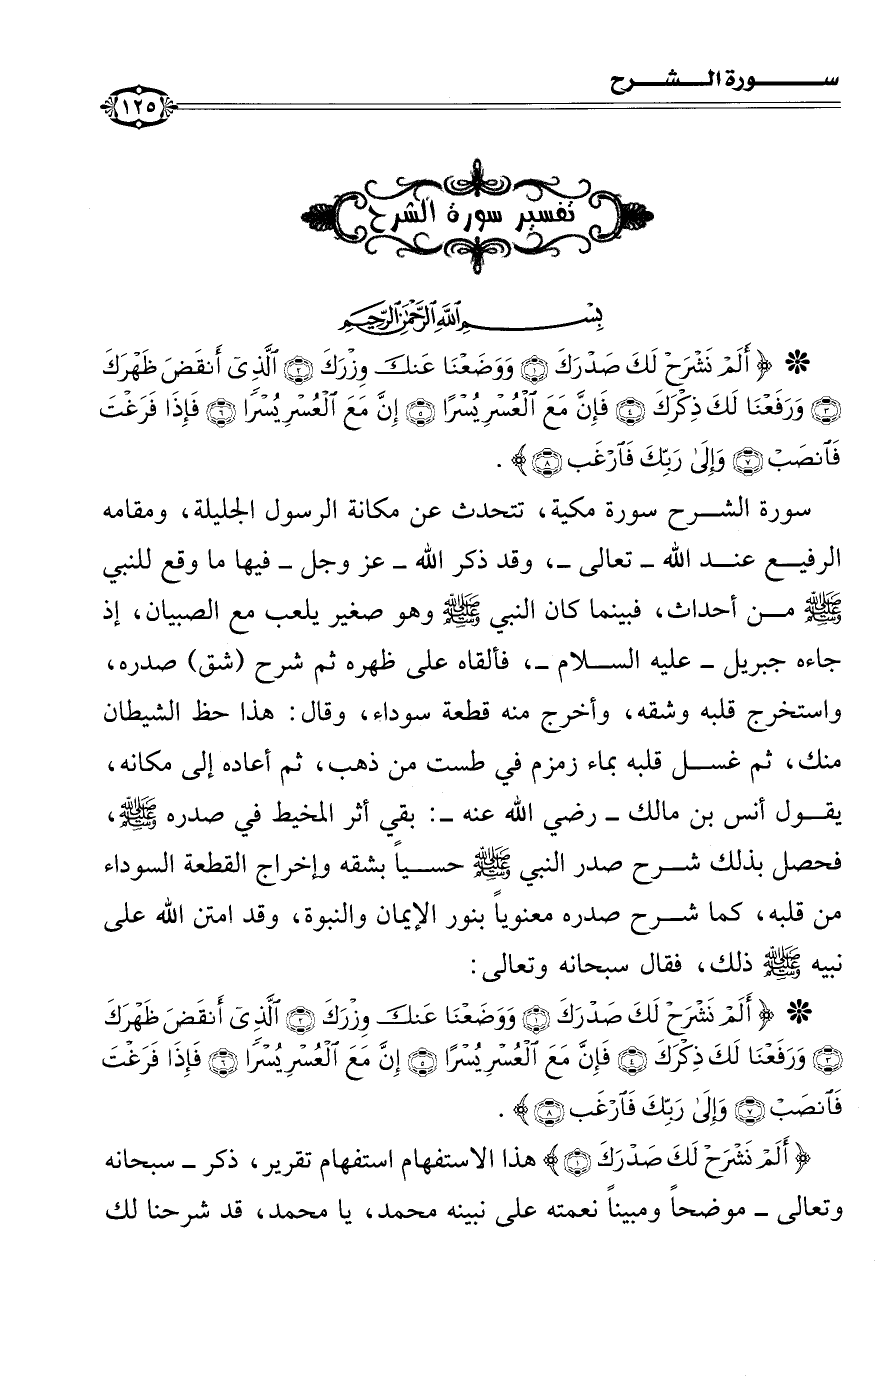 سورة الشرح
١٢٥
تفسير سورة الشرح
بِسْمِ ٱللَّهِ ٱلرَّحْمَٰنِ ٱلرَّحِيمِ
❋ ﴿ أَلَمْ نَشْرَحْ لَكَ صَدْرَكَ ۝١ وَوَضَعْنَا عَنكَ وِزْرَكَ ۝٢ ٱلَّذِىٓ أَنقَضَ ظَهْرَكَ
۝٣ وَرَفَعْنَا لَكَ ذِكْرَكَ ۝٤ فَإِنَّ مَعَ ٱلْعُسْرِ يُسْرًا ۝٥ إِنَّ مَعَ ٱلْعُسْرِ يُسْرًا ۝٦ فَإِذَا فَرَغْتَ
فَٱنصَبْ ۝٧ وَإِلَىٰ رَبِّكَ فَٱرْغَب ۝٨ ﴾ .
سورة الشرح سورة مكية، تتحدث عن مكانة الرسول الجليلة، ومقامه
الرفيع عند الله ـ تعالى ـ، وقد ذكر الله ـ عز وجل ـ فيها ما وقع للنبي
ﷺ من أحداث، فبينما كان النبي ﷺ وهو صغير يلعب مع الصبيان، إذ
جاءه جبريل ـ عليه السلام ـ، فألقاه على ظهره ثم شرح (شق) صدره،
واستخرج قلبه وشقه، وأخرج منه قطعة سوداء، وقال: هذا حظ الشيطان
منك، ثم غسل قلبه بماء زمزم في طست من ذهب، ثم أعاده إلى مكانه،
يقول أنس بن مالك ـ رضي الله عنه ـ: بقي أثر المخيط في صدره ﷺ،
فحصل بذلك شرح صدر النبي ﷺ حسياً بشقه وإخراج القطعة السوداء
من قلبه، كما شرح صدره معنوياً بنور الإيمان والنبوة، وقد امتن الله على
نبيه ﷺ ذلك، فقال سبحانه وتعالى:
❋ ﴿ أَلَمْ نَشْرَحْ لَكَ صَدْرَكَ ۝١ وَوَضَعْنَا عَنكَ وِزْرَكَ ۝٢ ٱلَّذِىٓ أَنقَضَ ظَهْرَكَ
۝٣ وَرَفَعْنَا لَكَ ذِكْرَكَ ۝٤ فَإِنَّ مَعَ ٱلْعُسْرِ يُسْرًا ۝٥ إِنَّ مَعَ ٱلْعُسْرِ يُسْرًا ۝٦ فَإِذَا فَرَغْتَ
فَٱنصَبْ ۝٧ وَإِلَىٰ رَبِّكَ فَٱرْغَب ۝٨ ﴾ .
﴿ أَلَمْ نَشْرَحْ لَكَ صَدْرَكَ ۝١ ﴾ هذا الاستفهام استفهام تقرير، ذكر ـ سبحانه
وتعالى ـ موضحاً ومبيناً نعمته على نبينه محمد، يا محمد، قد شرحنا لك